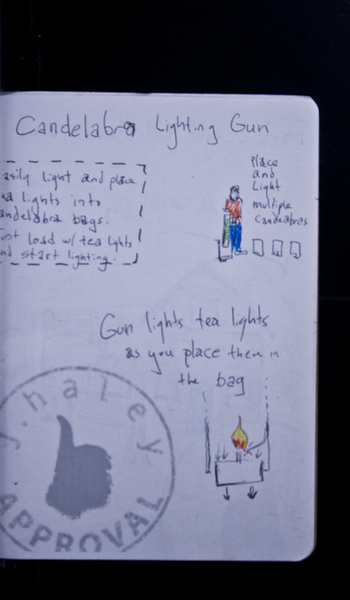 Candelabra Lighting Gun
asily light and place
ea lights into
andelabra bags.
ust load w/ tea lghts
nd start lighting.
Place
and
Light
multiple
Candelabras
Gun lights tea lights
as you place them in
the bag
j.haley
APPROVAL